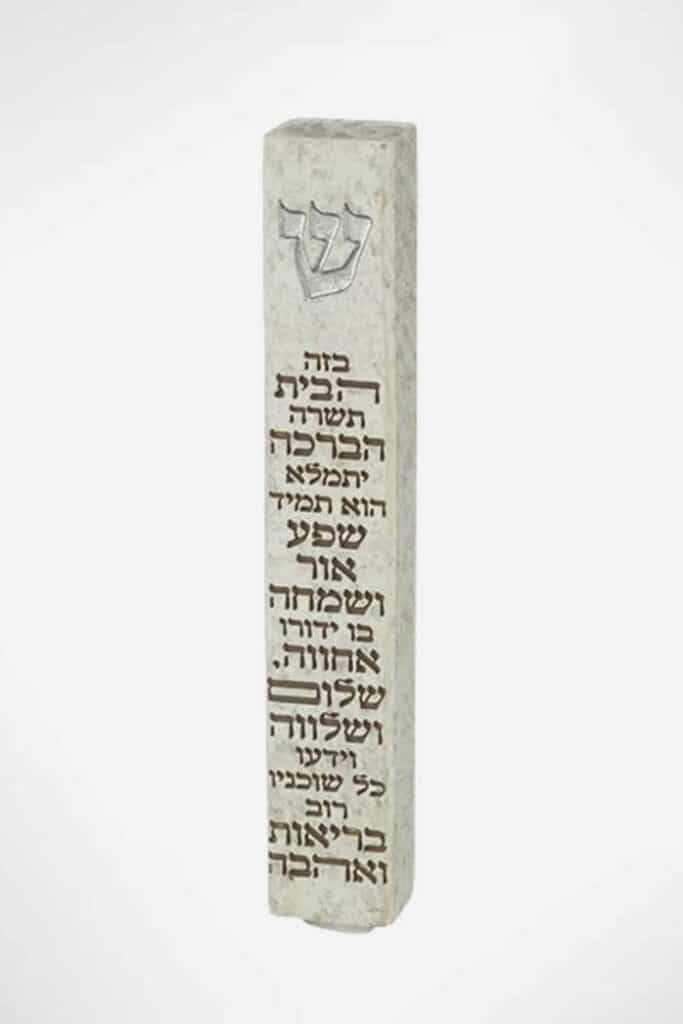 ש
בזה
הבית
תשרה
הברכה
יתמלא
הוא תמיד
שפע
אור
ושמחה
בו ידורו
אחווה,
שלום
ושלווה
וידעו
כל שוכניו
רוב
בריאות
ואהבה